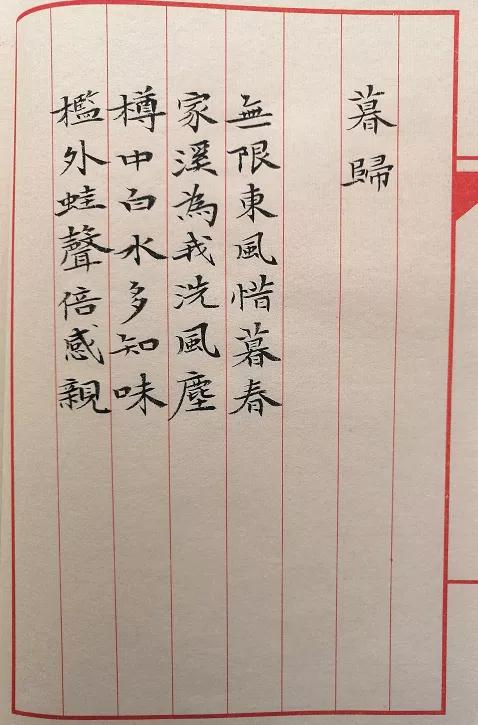 暮歸
無限東風惜暮春
家溪為我洗風塵
樽中白水多知味
檻外蛙聲倍感親